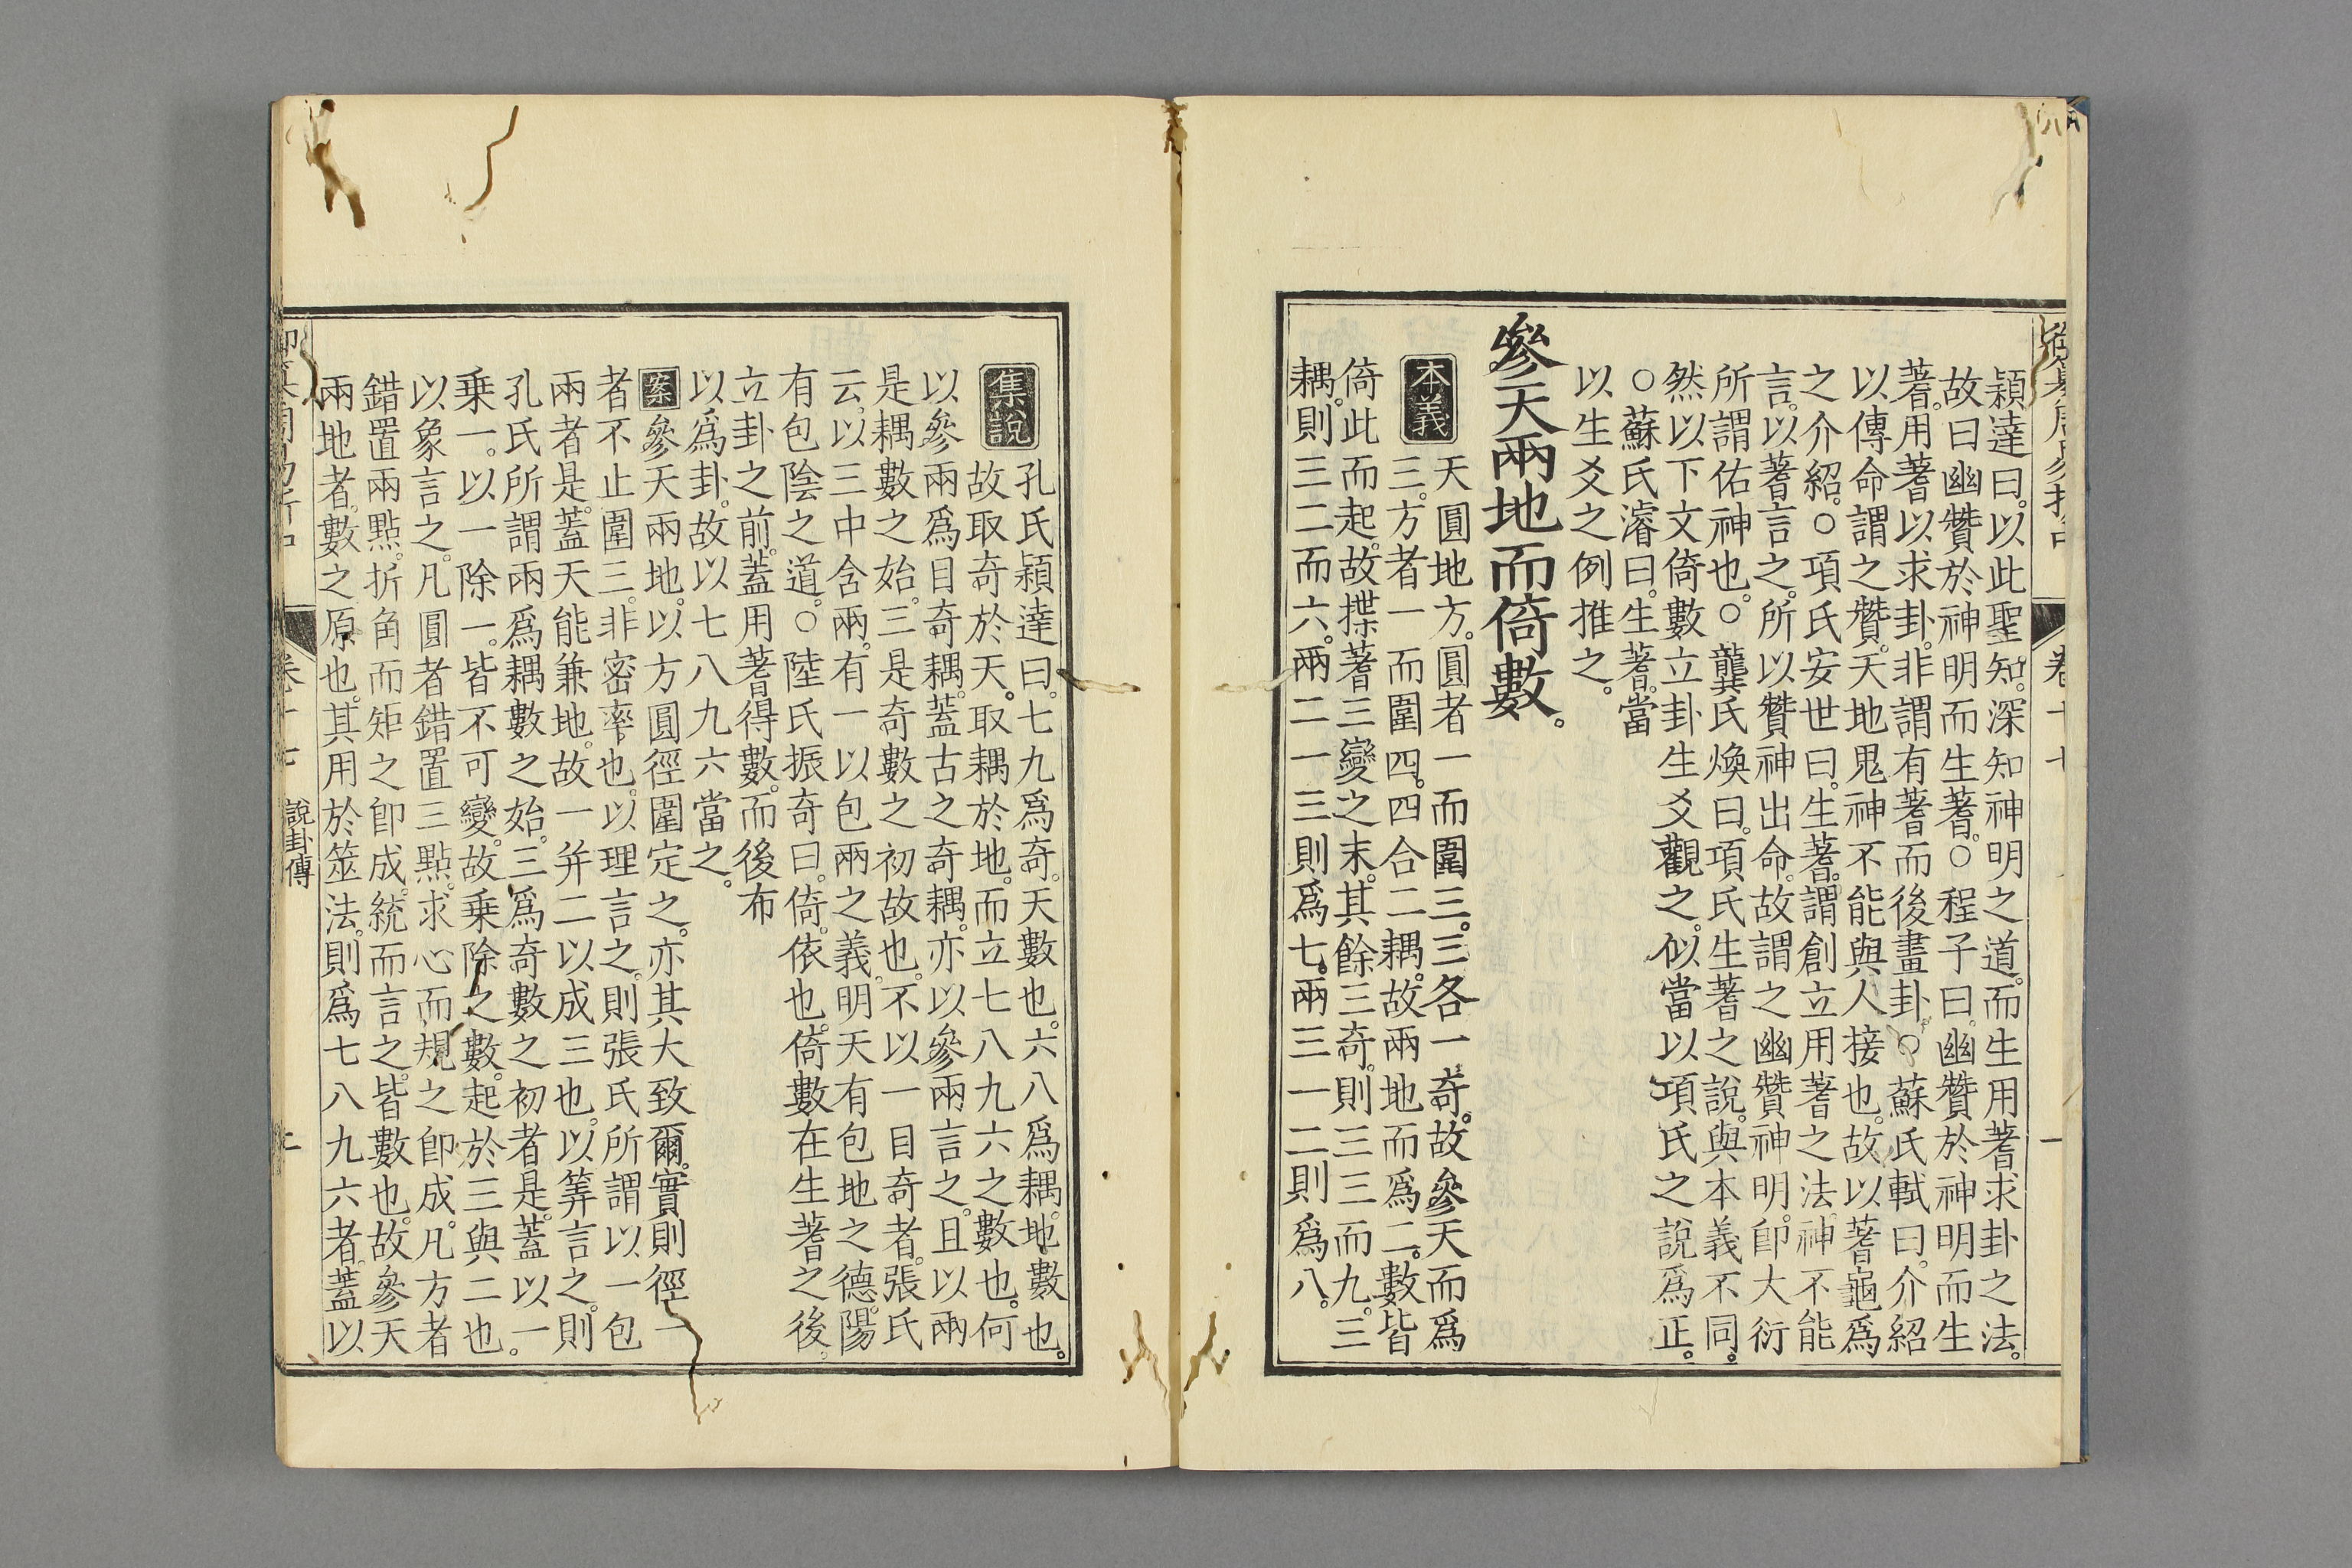 卷十七
潁達曰。以此聖知。深知神明之道。而生用蓍求卦之法。
故曰幽贊於神明而生蓍。○程子曰。幽贊於神明而生
蓍。用蓍以求卦。非謂有蓍而後畫卦。○蘇氏軾曰。介紹
以傳命謂之贊。天地鬼神不能與人接也。故以蓍龜爲
之介紹。○項氏安世曰。生蓍。謂創立用蓍之法。神不能
言。以蓍言之。所以贊神出命。故謂之幽贊神明。即大衍
所謂佑神也。○龔氏煥曰。項氏生蓍之說。與本義不同。
然以下文倚數立卦生爻觀之。似當以項氏之說爲正。
○蘇氏濬曰。生蓍。當
以生爻之例推之。
參天兩地而倚數。
本義
天圓地方。圓者一而圍三。三各一奇。故參天而爲
三。方者一而圍四。四合二耦。故兩地而爲二。數皆
倚此而起。故揲蓍三變之末。其餘三奇。則三三而九。三
耦。則三二而六。兩二一三則爲七。兩三一二則爲八。
集說
孔氏潁達曰。七九爲奇。天數也。六八爲耦。地數也。
故取奇於天。取耦於地。而立七八九六之數也。何
以參兩爲目奇耦。蓋古之奇耦。亦以參兩言之。且以兩
是耦數之始。三是奇數之初故也。不以一目奇者。張氏
云。以三中含兩。有一以包兩之義。明天有包地之德。陽
有包陰之道。○陸氏振奇曰。倚。依也。倚數在生蓍之後。
立卦之前。蓋用蓍得數。而後布
以爲卦。故以七八九六當之。
案參天兩地。以方圓徑圍定之。亦其大致爾。實則徑一
者不止圍三。非密率也。以理言之。則張氏所謂以一包
兩者是。蓋天能兼地。故一并二以成三也。以筭言之。則
孔氏所謂兩爲耦數之始。三爲奇數之初者是。蓋以一
乘一。以一除一。皆不可變。故乘除之數。起於三與二也。
以象言之。凡圓者錯置三點。求心而規之卽成。凡方者
錯置兩點。折角而矩之卽成。統而言之。皆數也。故參天
兩地者。數之原也。其用於筮法。則爲七八九六者。蓋以
說卦傳